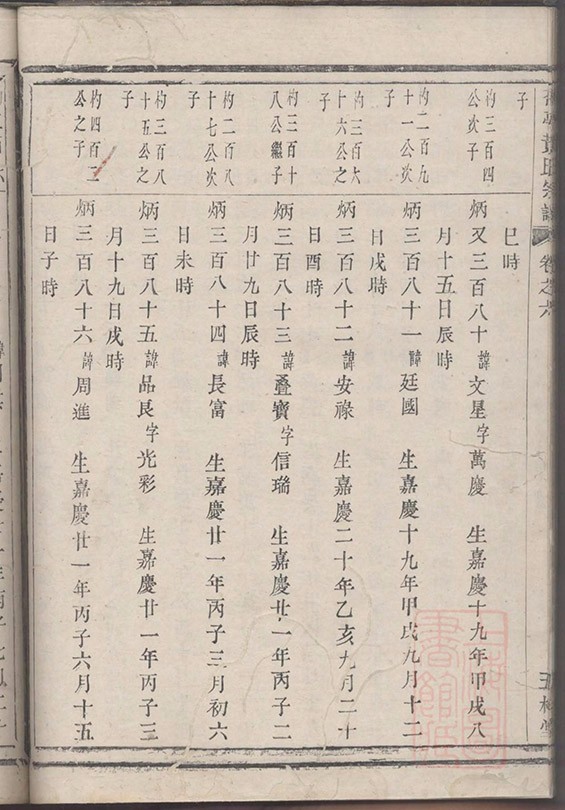 子
巳時
杓三百四
公次子
炳又三百八十諱文星字萬慶 生嘉慶十九年甲戌八
月十五日辰時
杓二百九
十一公次
子
炳三百八十一諱廷國 生嘉慶十九年甲戌九月十二
日戌時
杓三百六
十六公之
子
炳三百八十二諱安祿 生嘉慶二十年乙亥九月二十
日酉時
杓三百十
八公繼子
炳三百八十三諱疊寶字信瑞 生嘉慶廿一年丙子二
月廿九日辰時
杓二百八
十七公次
子
炳三百八十四諱長富 生嘉慶廿一年丙子三月初六
日未時
杓三百八
十五公之
子
炳三百八十五諱品良字光彩 生嘉慶廿一年丙子三
月十九日戌時
杓四百二
公之子
炳三百八十六諱周進 生嘉慶廿一年丙子六月十五
日子時